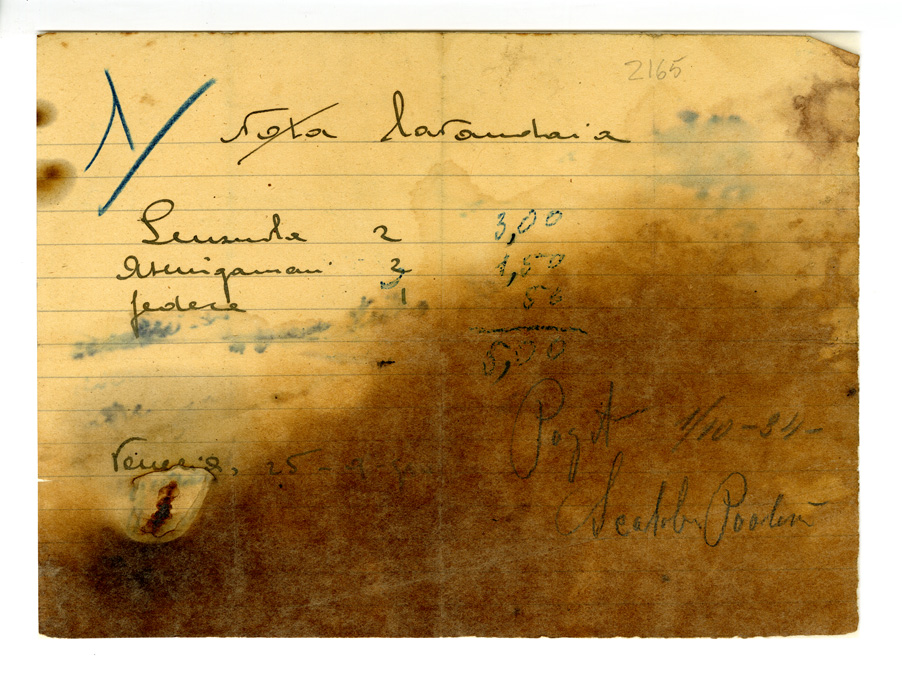 2165
Nota lavandaia
Lenzuola 2 3,00
Asciugamani 3 1,50
federe 1 50
5,00
Venezia, 25-9-
1/10-34-